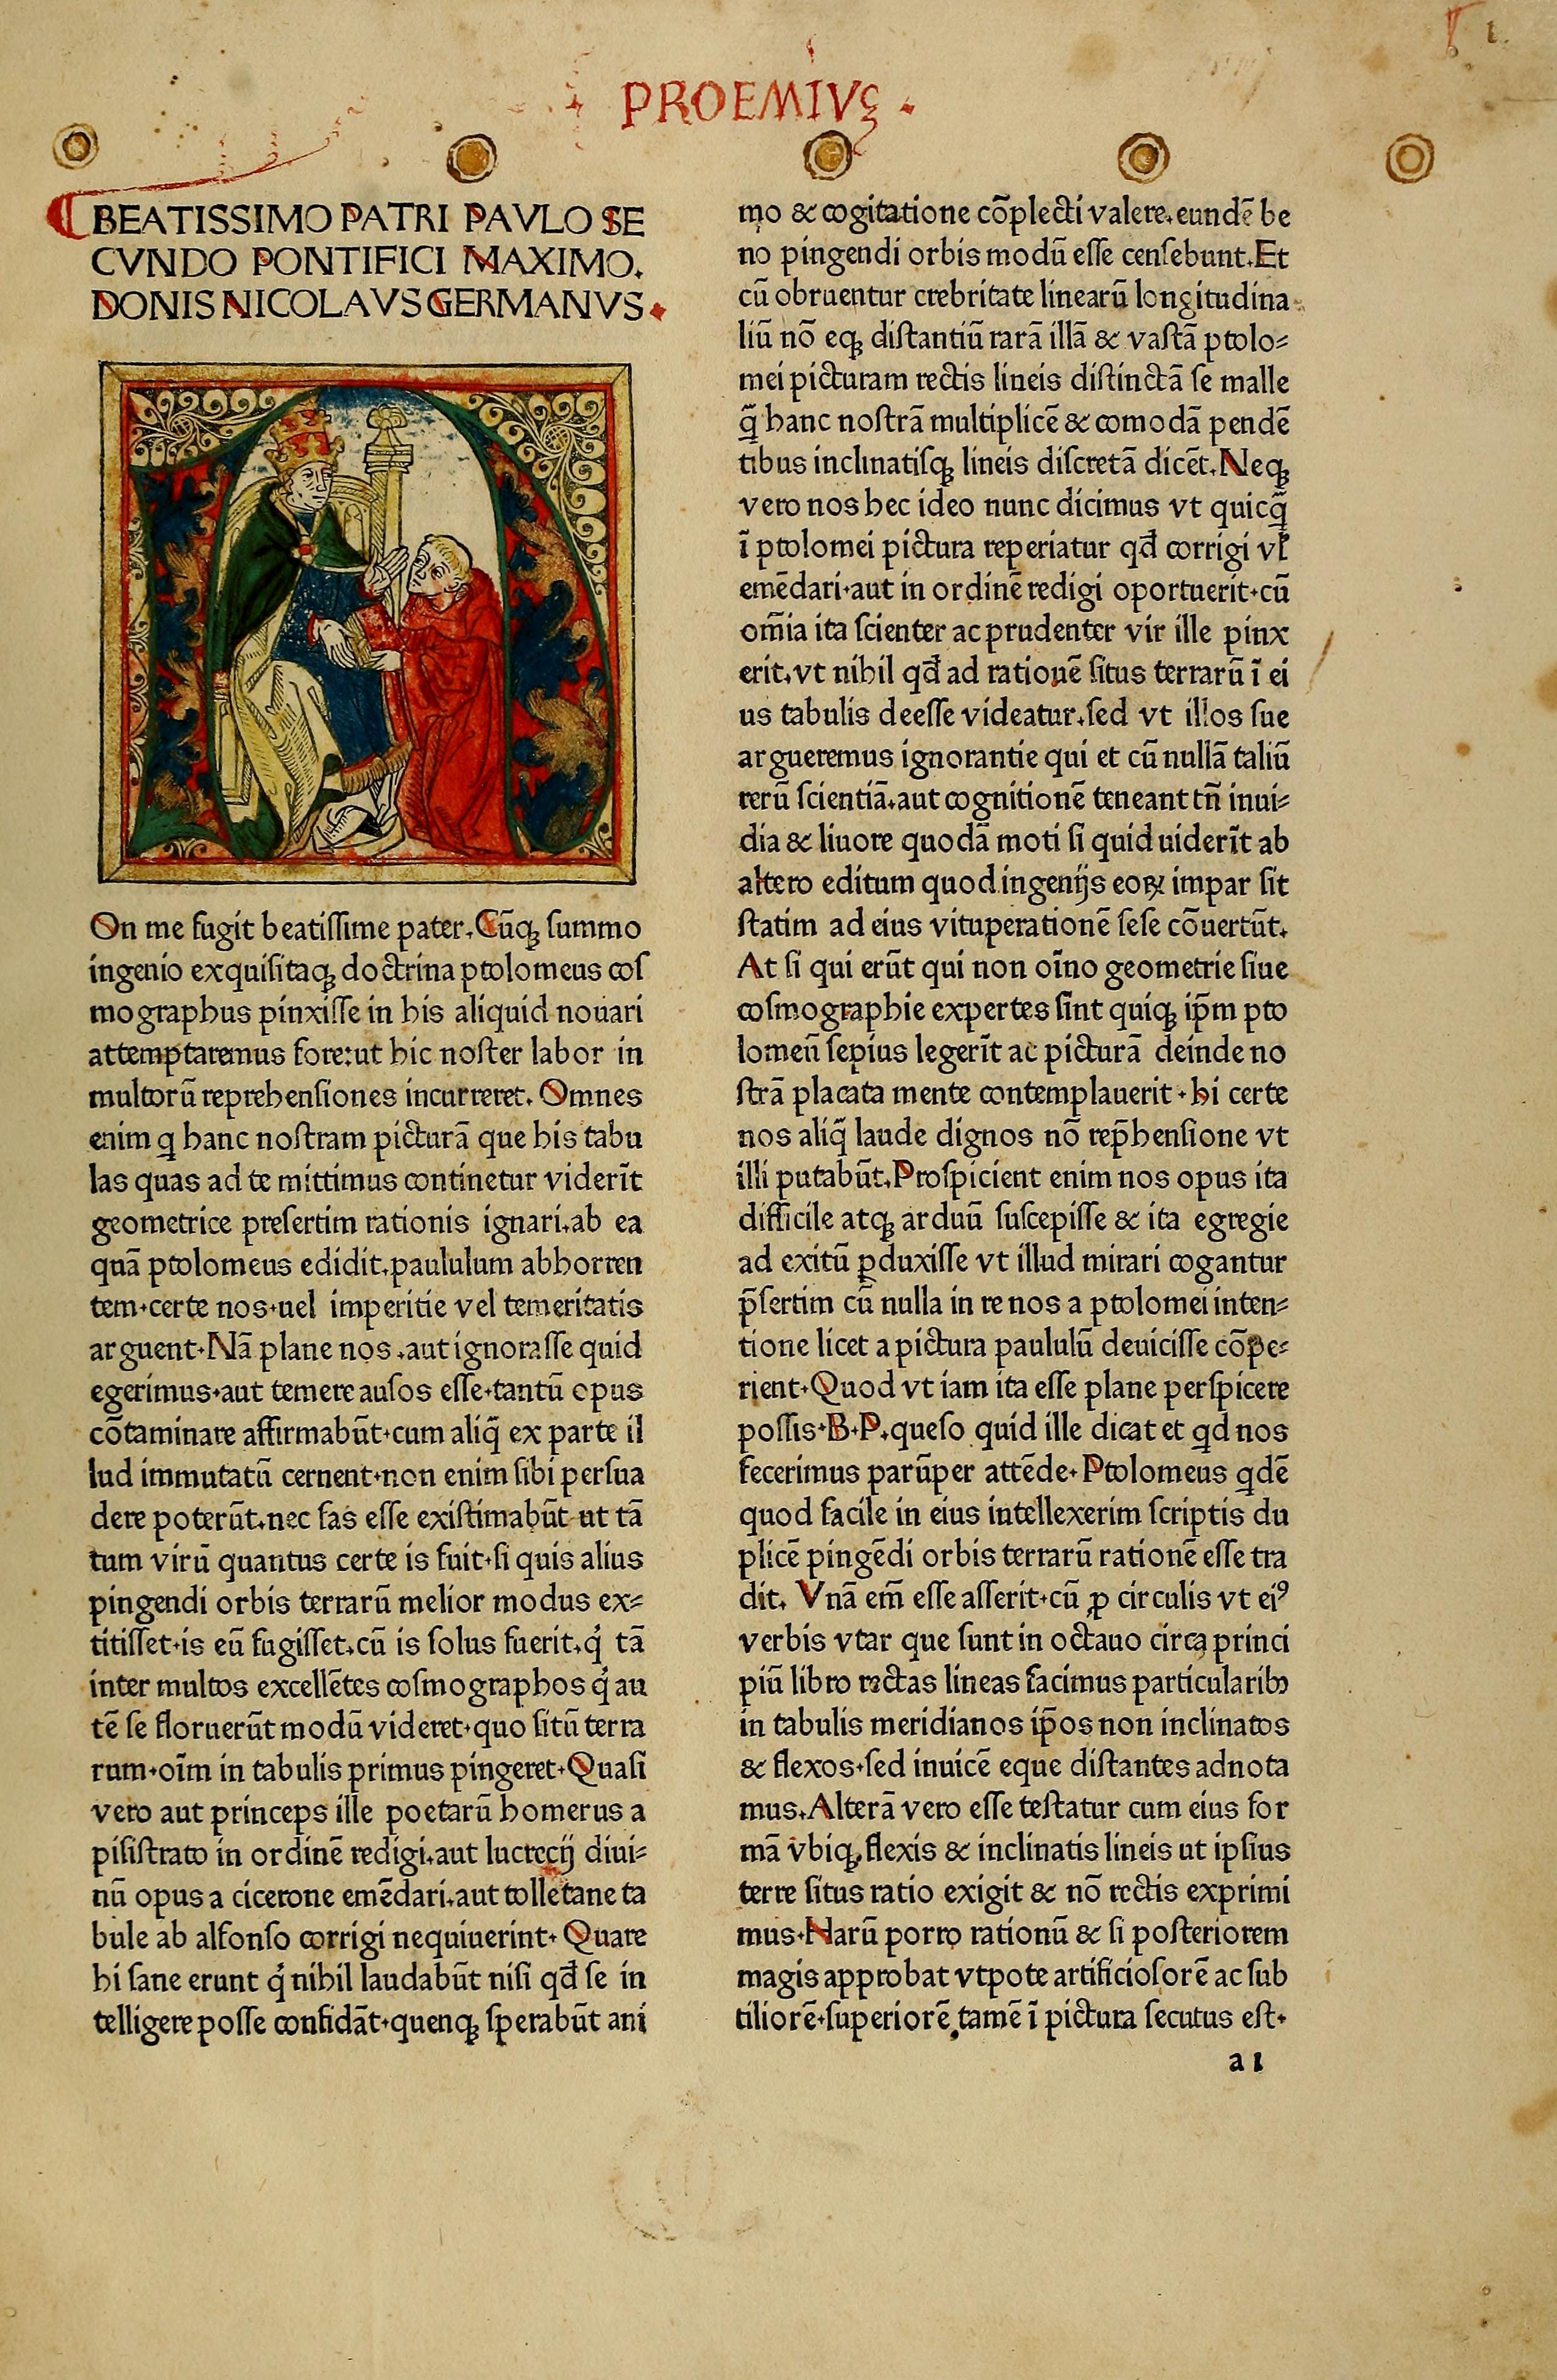 PROEMIVꝫ
1.
BEATISSIMO PATRI PAVLO SE
CVNDO PONTIFICI MAXIMO.
DONIS NICOLAVS GERMANVS.
N
On me fugit beatissime pater. Cūqꝫ summo
ingenio exquisitaqꝫ doctrina ptolomeus cos
mographus pinxisse in his aliquid nouari
attemptaremus fore: ut hic noster labor in
multorū reprehensiones incurreret. Omnes
enim q hanc nostram picturā que his tabu
las quas ad te mittimus continetur viderīt
geometrice presertim rationis ignari. ab ea
quā ptolomeus edidit. paululum abhorren
tem. certe nos. uel imperitie vel temeritatis
arguent. Nā plane nos. aut ignorasse quid
egerimus. aut temere ausos esse. tantū opus
cōtaminare affirmabūt. cum aliq̄ ex parte il
lud immutatū cernent. non enim sibi persua
dere poterūt. nec fas esse existimabūt ut tā
tum virū quantus certe is fuit. si quis alius
pingendi orbis terrarū melior modus ex=
titisset. is eū fugisset. cū is solus fuerit. q̇ tā
inter multos excellētes cosmographos q̇ au
tē se floruerūt modū videret. quo sitū terra
rum. oīm in tabulis primus pingeret. Quasi
vero aut princeps ille poetarū homerus a
pisistrato in ordinē redigi. aut lucrecij diui=
nū opus a cicerone emēdari. aut tolletane ta
bule ab alfonso corrigi nequiuerint. Quare
hi sane erunt q̇ nihil laudabūt nisi qd̄ se in
telligere posse confidāt. quenqꝫ sperabūt ani
mo & cogitatione cōplecti valere. eundē be
no pingendi orbis modū esse censebunt. Et
cū obruentur crebritate linearū longitudina
liū nō eqꝫ distantiū rarā illā & vastā ptolo=
mei picturam rectis lineis distinctā se malle
q̄ hanc nostrā multiplicē & comodā pendē
tibus inclinatisqꝫ lineis discretā dicēt. Neqꝫ
vero nos hec ideo nunc dicimus vt quicq̄
ī ptolomei pictura reperiatur qd̄ corrigi vl̄
emēdari. aut in ordinē redigi oportuerit. cū
om̄ia ita scienter ac prudenter vir ille pinx
erit. vt nihil qd̄ ad rationē situs terrarū ī ei
us tabulis deesse videatur. sed vt illos sue
argueremus ignorantie qui et cū nullā taliū
rerū scientiā. aut cognitionē teneant tn̄ inui=
dia & liuore quodā moti si quid uiderīt ab
altero editum quod ingenijs eoꝝ impar sit
statim ad eius vituperationē sese cōuertūt.
At si qui erūt qui non oīno geometrie siue
cosmographie expertes sint quiqꝫ ip̄m pto
lomeū sepius legerīt ac picturā deinde no
strā placata mente contemplauerit. hi certe
nos aliq̄ laude dignos nō rep̄hensione vt
illi putabūt. Prospicient enim nos opus ita
difficile atqꝫ arduū suscepisse & ita egregie
ad exitū ꝓduxisse vt illud mirari cogantur
p̄sertim cū nulla in re nos a ptolomei inten=
tione licet a pictura paululū deuicisse cōpe=
rient. Quod vt iam ita esse plane perspicere
possis. B. P. queso quid ille dicat et qd nos
fecerimus parūper attēde. Ptolomeus qdē
quod facile in eius intellexerim scriptis du
plicē pingēdi orbis terrarū rationē esse tra
dit. Vnā em̄ esse asserit. cū ꝓ circulis vt eiꝰ
verbis vtar que sunt in octauo circa princi
piū libro rectas lineas facimus particularibꝫ
in tabulis meridianos ip̄os non inclinatos
& flexos. sed inuicē eque distantes adnota
mus. Alterā vero esse testatur cum eius for
mā vbiqꝫ flexis & inclinatis lineis ut ipsius
terre situs ratio exigit & nō rectis exprimi
mus. Harū porro rationū & si posteriorem
magis approbat vtpote artificiosorē ac sub
tiliorē. superiorē tamē ī pictura secutus est.
a 1